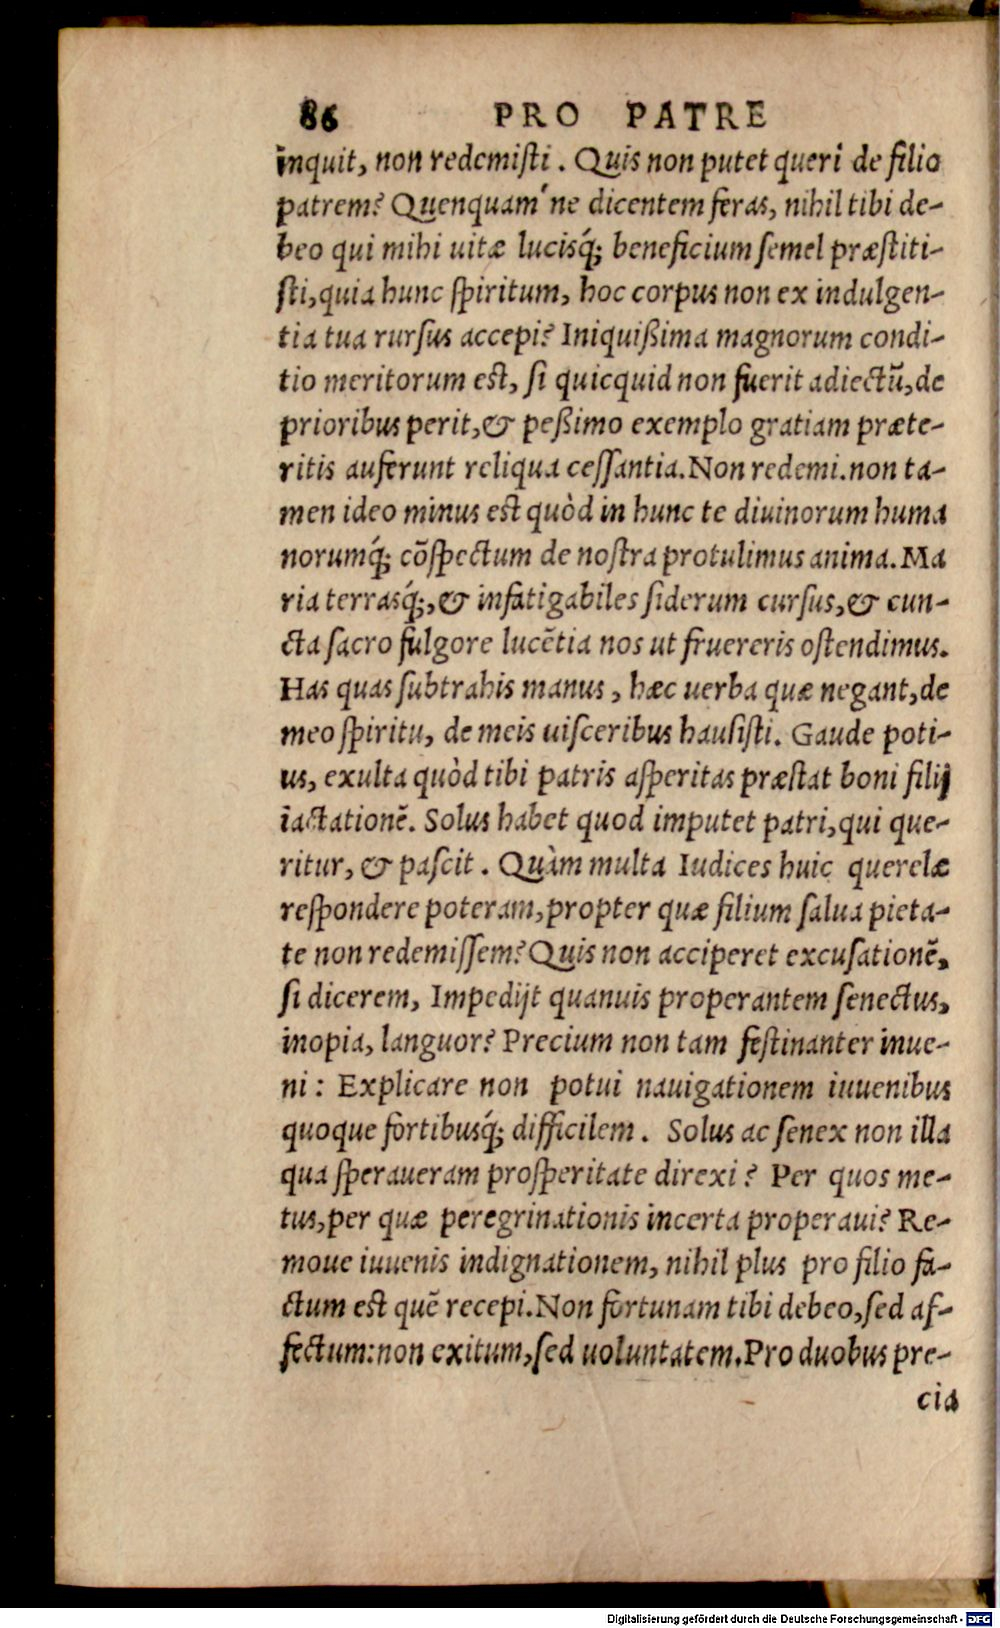 86 PRO PATRE
inquit, non redemisti. Quis non putet queri de filio
patrem? Quenquam'ne dicentem feras, nihil tibi de-
beo qui mihi uitæ lucisq́; beneficium semel præstiti-
sti, quia hunc spiritum, hoc corpus non ex indulgen-
tia tua rursus accepi? Iniquißima magnorum condi-
tio meritorum est, si quicquid non fuerit adiectũ, de
prioribus perit, & peßimo exemplo gratiam præte-
ritis auferunt reliqua cessantia. Non redemi. non ta-
men ideo minus est quòd in hunc te diuinorum huma
norumq́; cõspectum de nostra protulimus anima. Ma
ria terrasq́;, & infatigabiles siderum cursus, & cun-
cta sacro fulgore lucẽtia nos ut fruereris ostendimus.
Has quas subtrahis manus, hæc uerba quæ negant, de
meo spiritu, de meis uisceribus hausisti. Gaude poti-
us, exulta quòd tibi patris asperitas præstat boni filij
iactationẽ. Solus habet quod imputet patri, qui que-
ritur, & pascit. Quàm multa Iudices huic querelæ
respondere poteram, propter quæ filium salua pieta-
te non redemissem? Quis non acciperet excusationẽ,
si dicerem, Impedijt quanuis properantem senectus,
inopia, languor? Precium non tam festinanter inue-
ni: Explicare non potui nauigationem iuuenibus
quoque fortibusq́; difficilem. Solus ac senex non illa
qua speraueram prosperitate direxi? Per quos me-
tus, per quæ peregrinationis incerta properaui? Re-
moue iuuenis indignationem, nihil plus pro filio fa-
ctum est quẽ recepi. Non fortunam tibi debeo, sed af-
fectum: non exitum, sed uoluntatem. Pro duobus pre-
cia
Digitalisierung gefördert durch die Deutsche Forschungsgemeinschaft - DFG